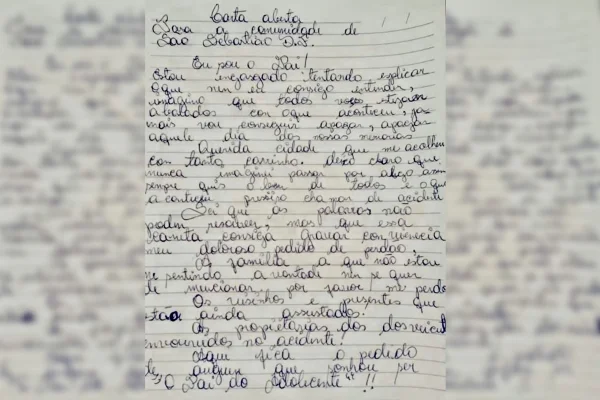 Carta aberta
Para a comunidade de
São Sebastião D.F.
Eu sou o Pai!
Estou engasgado tentando explicar
oque nem eu consigo entender,
imagino que todos vocês estejam
abalados con oque aconteceu, ja
mais vou conseguir apagar, apagar
aquele dia das nossas memorias
Querida cidade que me acolheu
con tanto carinho. dexo claro que
nunca imaginei passar por algo assim
sempre quis o bem de todos e oque
aconteceu prefiro chamar de acidente
Sei que as palavras não
podem resolver, mas que essa
caneta consiga gravar con
meu doloroso pedido de perdão,
As familia a que não estou
me sentindo a vontade nen se quer
de muncionar, por favor me perdoe
Os visinhos e presentes que
estão ainda assustados.
As proprietarias dos dos veicul
envouvidos no acidente!
Aqui fica o pedido
de auguen que sonhou ser
"O Pai do Adolecente" !!